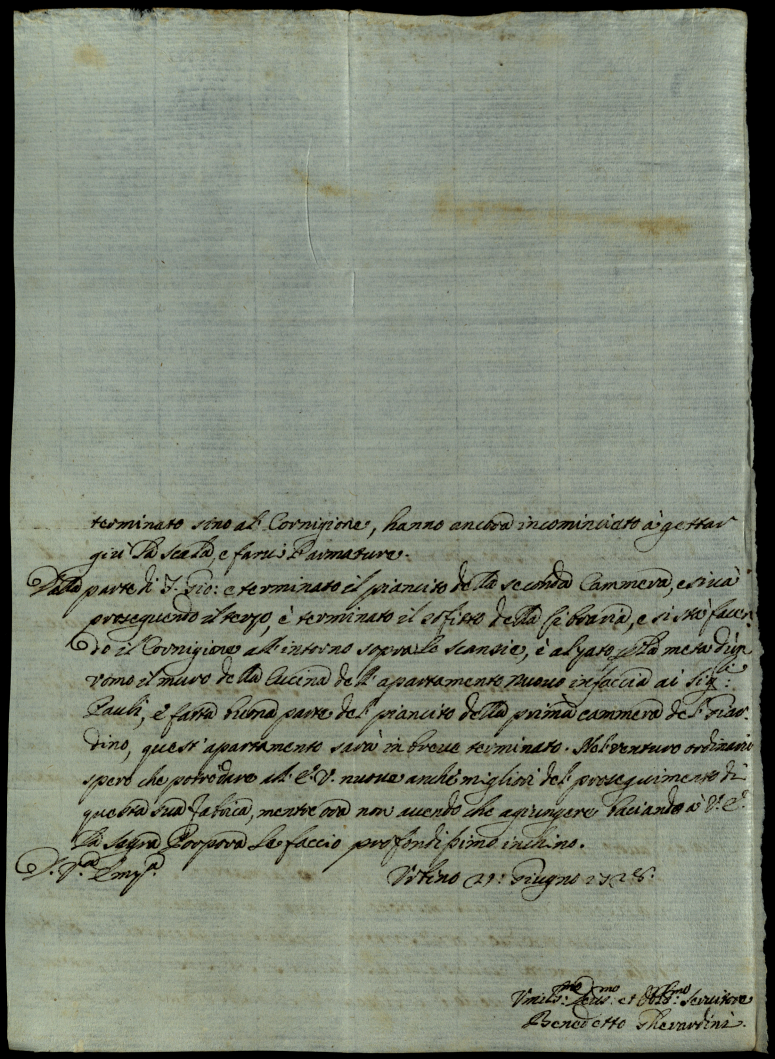 terminato sino al Cornigione, hanno ancora incominciato à gettar
giù la scala, e farui l'armature.
Dalla parte di S. Gio: è terminato il piancito della seconda Cammera, e si uà
proseguendo il terzo, è terminato il sofitto della libraria, e si stà facen
do il Cornigione all'intorno sopra le scansie, è alzato per la metà d'un
uomo il muro della Cucina dell'apartamento nuouo infaccia ai Sig.ri
Pauli, è fatta buona parte del piancito della prima cammera del Giar-
dino, quest'apartamento sarà in breue terminato. Nel venturo ordinario
spero che potrò dare all'E. V. nuoue anche migliori del proseguimento di
questa sua Fabrica, mentre ora non auendo che agiungere baciando à V. E.
la Sagra Porpora le faccio profondissimo inchino.
D. V.ra Em.za
Urbino 21: Giugno 1728.
Umiliss.mo Deuo.mo et Obblig.mo Seruitore
Benedetto Gherardini.